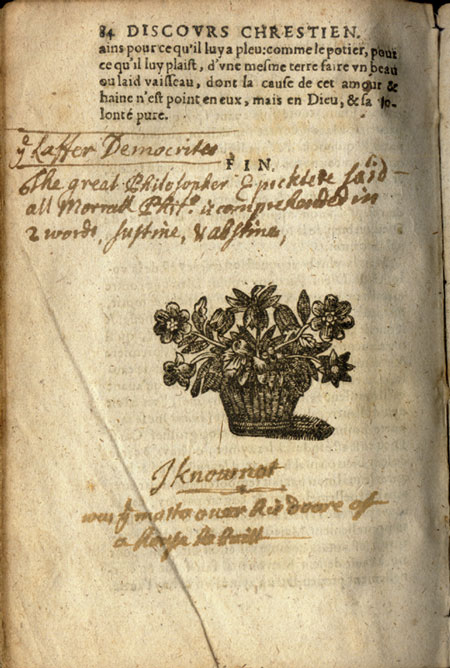 84 DISCOVRS CHRESTIEN.
ains pour ce qu'il luy a pleu: comme le potier, pour
ce qu'il luy plaist, d'vne mesme terre faire vn beau
ou laid vaisseau, dont la cause de cet amour &
haine n'est point en eux, mais en Dieu, & sa vo-
lonté pure.
yͤ Laffer Democrites
FIN.
The great Philosopher Epicktete said
all Morrall Phitº is comprehended in
2 words, sustine, & abstine,
I know not
was yͤ motto over his doore of
a house he built